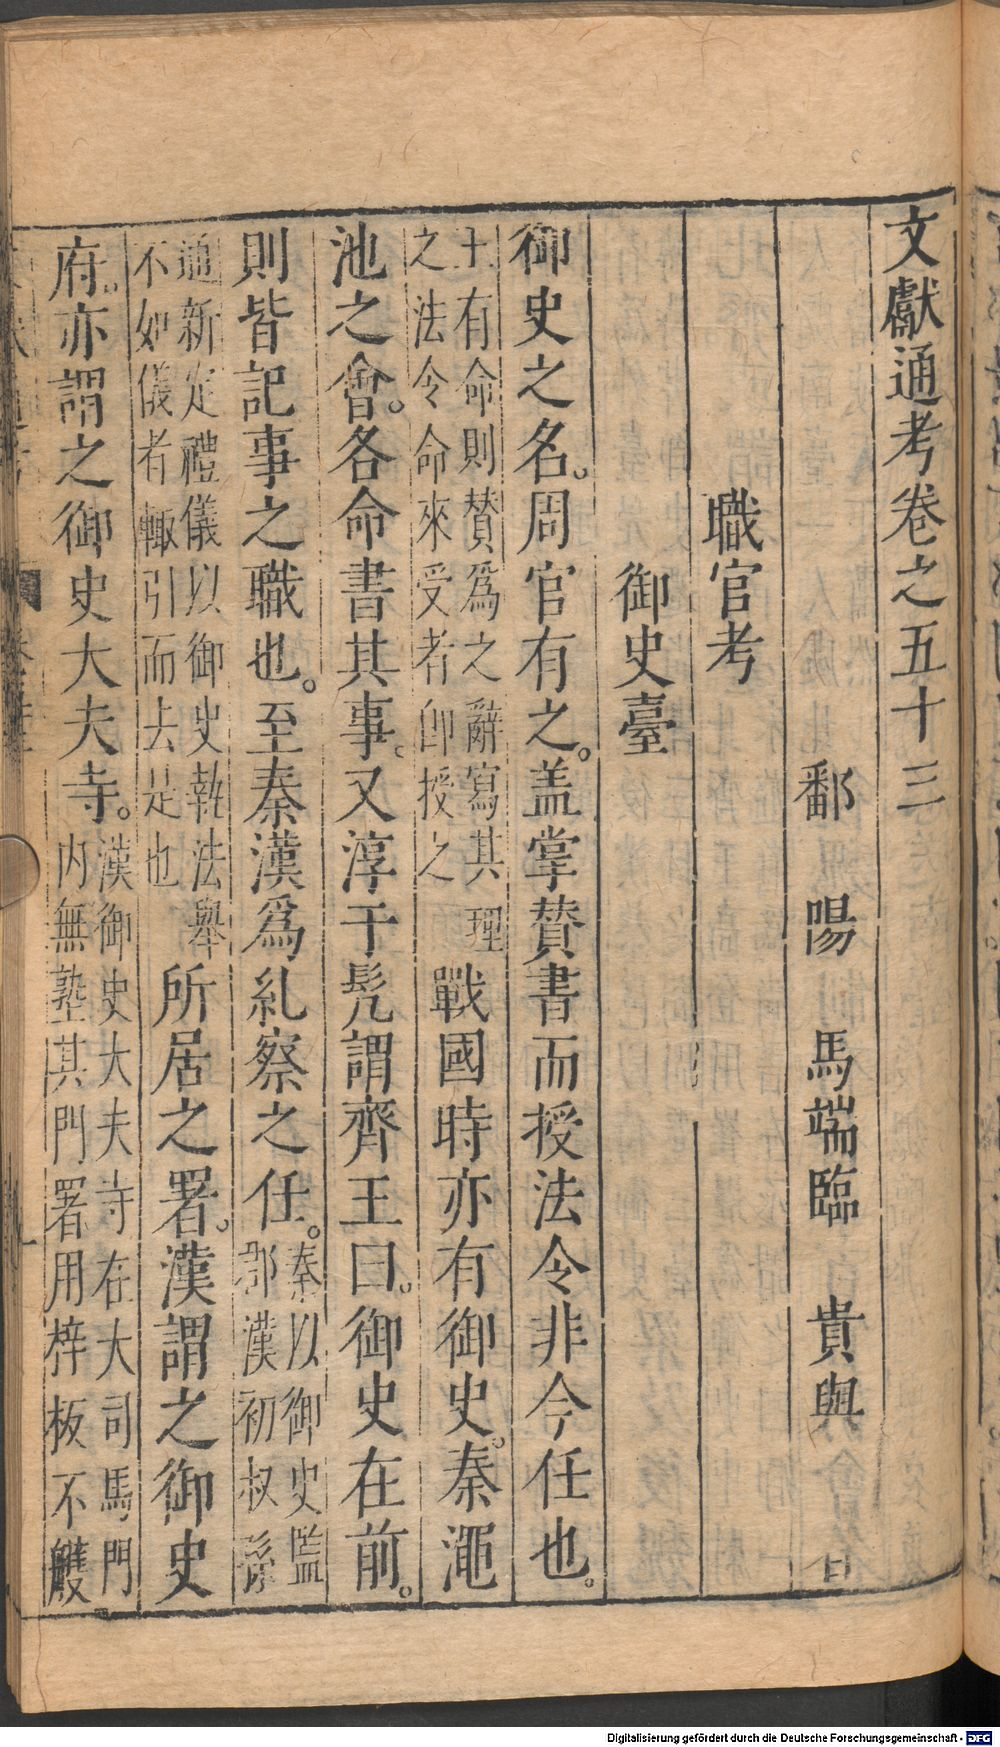 文獻通考卷之五十三
鄱　陽　馬端臨　貴與
職官考
御史臺
御史之名。周官有之。盖掌贊書而授法令非今任也。
王有命則贊爲之辭寫其理
之法令命來受者卽授之
戰國時亦有御史。秦澠
池之會。各命書其事。又淳于髡謂齊王曰。御史在前。
則皆記事之職也。至秦漢爲糺察之任。
秦以御史監
郡漢初叔孫
通新定禮儀以御史執法舉
不如儀者輙引而去是也
所居之署。漢謂之御史
府。亦謂之御史大夫寺。
漢御史大夫寺在大司馬門
内無塾其門署用梓板不雘
Digitalisierung gefördert durch die Deutsche Forschungsgemeinschaft - DFG